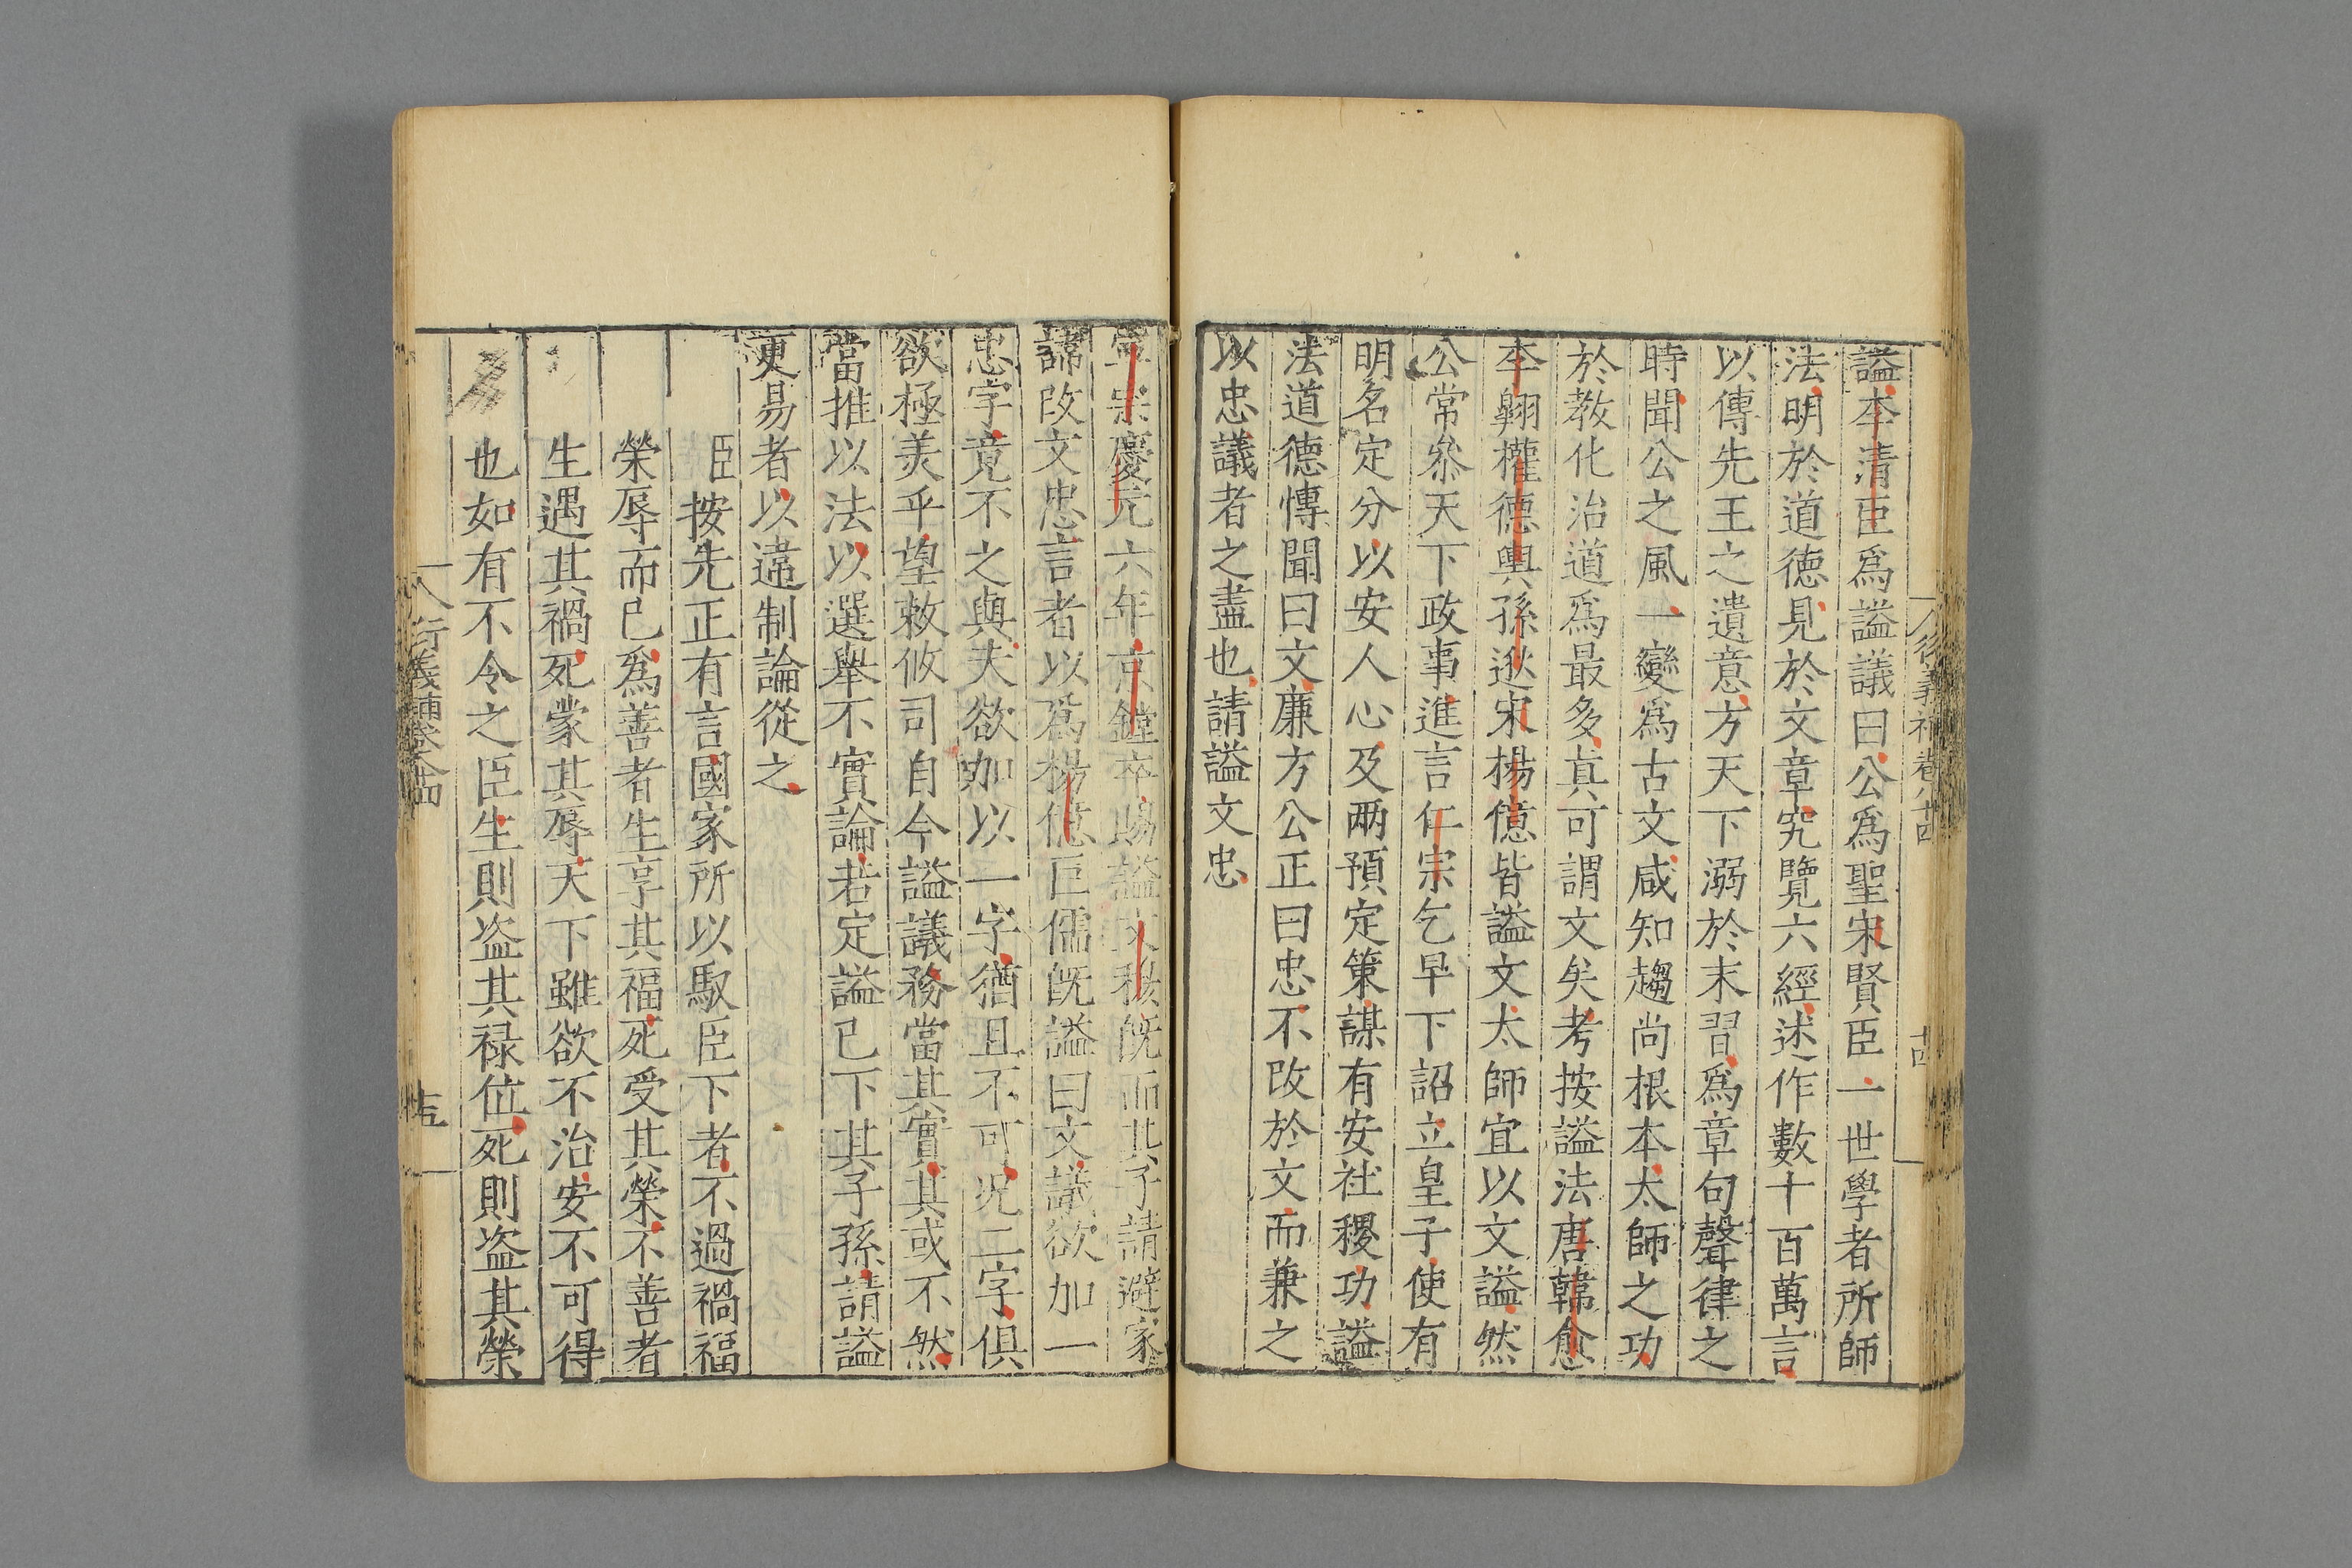 謚李清臣爲謚議曰公爲聖宋賢臣一世學者所師
法明於道德見於文章究覽六經述作數十百萬言
以傳先王之遺意方天下溺於末習爲章句聲律之
時聞公之風一變爲古文咸知趨尚根本太師之功
於教化治道爲最多真可謂文矣考按謚法唐韓愈
李翺權德輿孫逖宋楊億皆謚文太師宜以文謚然
公常叅天下政事進言仁宗乞早下詔立皇子使有
明名定分以安人心及兩預定策謀有安社稷功謚
法道德慱聞曰文廉方公正曰忠不改於文而兼之
以忠議者之盡也請謚文忠
寧宗慶元六年京鏜卒賜謚文穆旣而其子請避家
諱改文忠言者以爲楊億巨儒旣謚曰文議欲加一
忠字竟不之與夫欲加以一字猶且不可况二字俱
欲極美乎望敕攸司自今謚議務當其實其或不然
當推以法以選舉不實論若定謚已下其子孫請謚
更易者以違制論從之
臣按先正有言國家所以馭臣下者不過禍福
榮辱而已爲善者生享其福死受其榮不善者
生遇其禍死蒙其辱天下雖欲不治安不可得
也如有不令之臣生則盗其禄位死則盗其榮